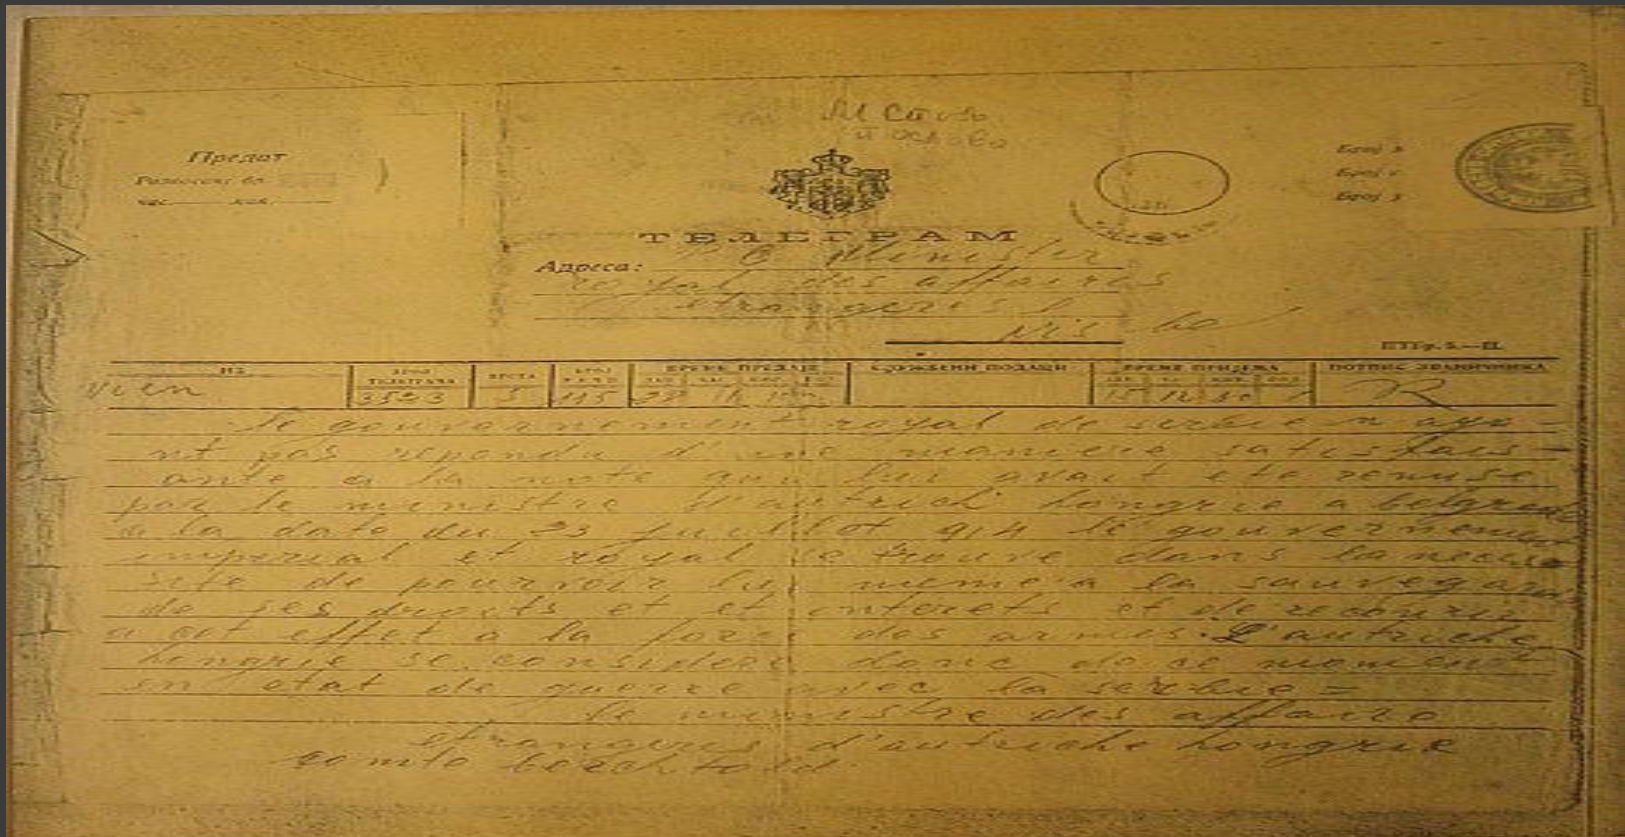 Предат
ТЕЛЕГРАМ
Адреса:
Minister
royal des affaires
etrangeres
Nis
ИЗ
БРОЈ ТЕЛЕГРАМА
ВРСТА
ВРЕМЕ ПРЕДАЈЕ
СЛУЖБЕНИ ПОДАЦИ
ВРЕМЕ ПРИЈЕМА
ПОТПИС ЗВАНИЧНИКА
Vien
Le gouvernement royal de serbie n aya-
nt pas repondu d'une maniere satisfais-
ante a la note qui lui avait ete remise
par le ministre d'autrich hongrie a belgrade
a la date du 23 juillet 914 le gouvernement
imperial et royal se trouve dans la neces
site de pourvoir lui meme a la sauvegarde
de ses droits et et interets et de recourir
a cet effet a la force des armes. L'autriche
hongrie se considere donc de ce moment
en etat de guerre avec la serbie =
le ministre des affaire
etrangeres d'autriche hongrie
comte berchtold